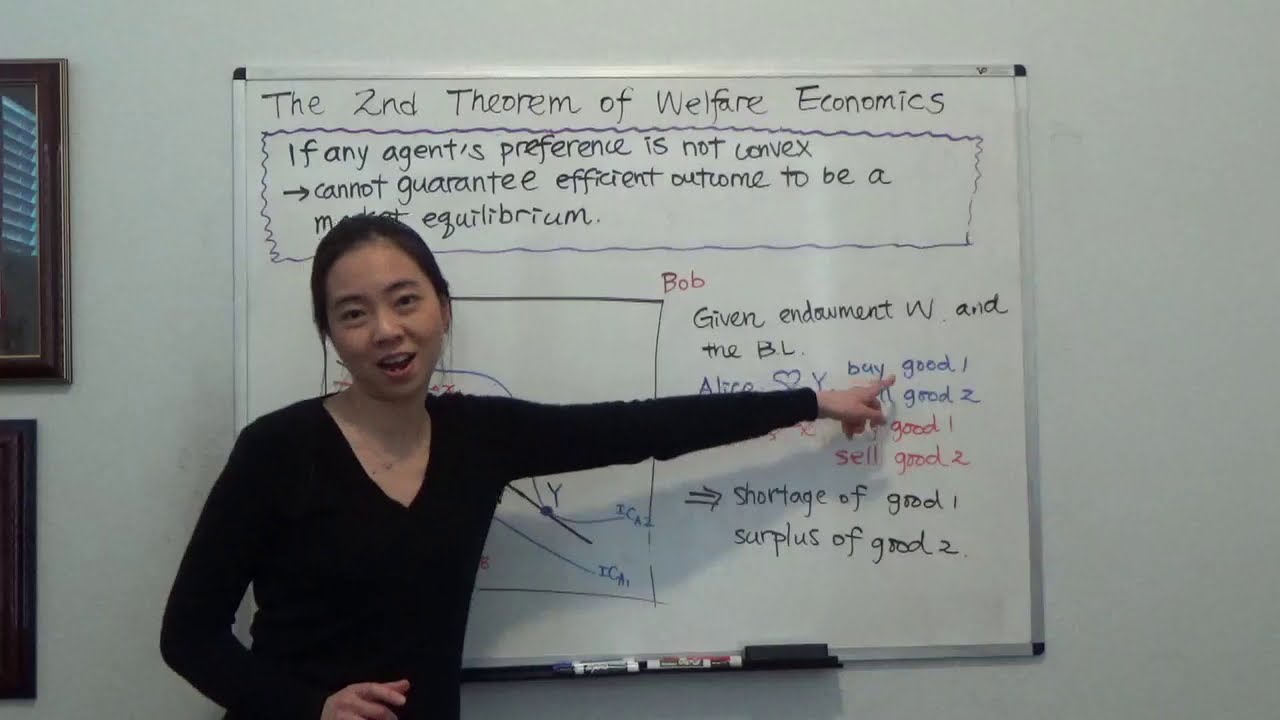 The 2nd Theorem of Welfare Economics
If any agent's preference is not convex
→ cannot guarantee efficient outcome to be a
market equilibrium.
Bob
Given endowment W. and
the B.L.
Alice ♡ Y. buy good 1
sell good 2
x good 1
sell good 2
⇒ shortage of good 1
surplus of good 2.
Y
IC_A2
IC_A1